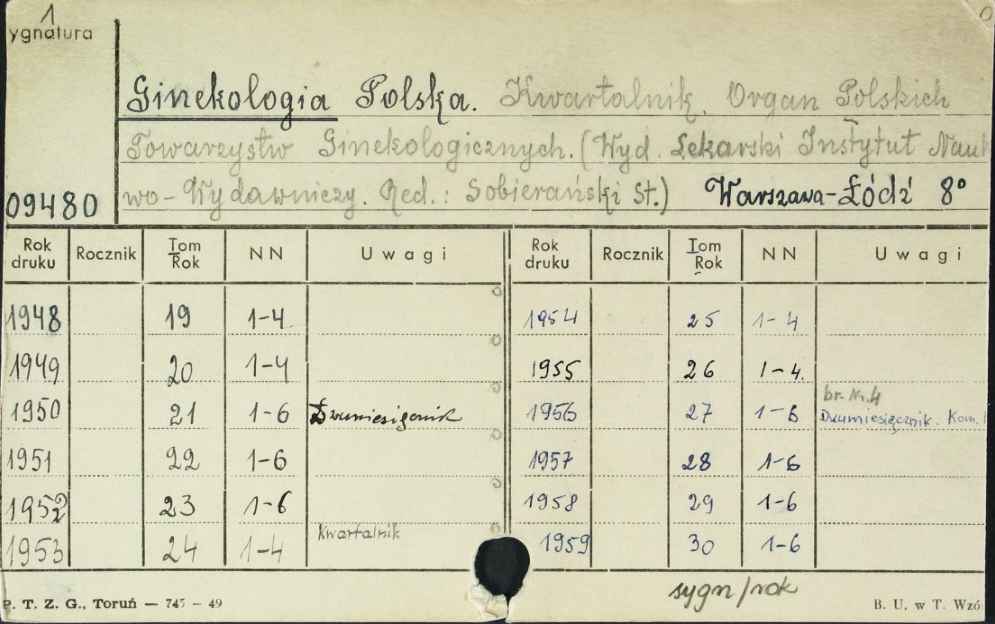 1
ygnatura
0
Ginekologia Polska. Kwartalnik. Organ Polskich
Towarzystw Ginekologicznych. (Wyd. Lekarski Instytut Nauk
wo-Wydawniczy. Red.: Sobierański St.) Warszawa-Łódź 8°
09480
Rok druku Rocznik Tom Rok NN Uwagi Rok druku Rocznik Tom Rok NN Uwagi
1948 19 1-4 1954 25 1-4
1949 20 1-4 1955 26 1-4.
br. Nr. 4
1950 21 1-6 Dwumiesięcznik 1956 27 1-6 Dwumiesięcznik. Kom.
1951 22 1-6 1957 28 1-6
1952 23 1-6 1958 29 1-6
1953 24 1-4 Kwartalnik 1959 30 1-6
sygn/rok
P. T. Z. G., Toruń — 745 – 49 B. U. w T. Wzó